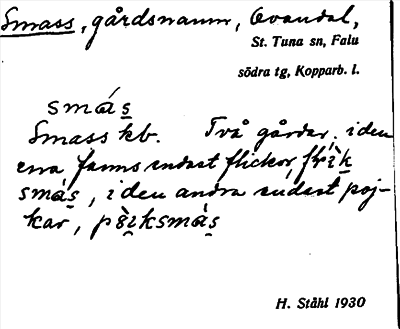 Smass, gårdsnamn, Övandal,
St. Tuna sn, Falu
södra tg, Kopparb. l.
smás
Smass kb. Två gårdar; i den
ena fanns endast flickor,
smás, i den andra endast poj-
kar, pöiksmás
H. Ståhl 1930